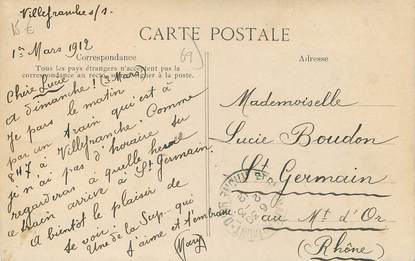 Villefranche s/s.
CARTE POSTALE
Correspondance
Tous les pays étrangers n'acceptent pas la
correspondance au recto, se renseigner à la poste.
Adresse
1er Mars 1912
Chère Lucie
A dimanche! (3 Mars)
Je pars le matin
par un train qui est à
8H7 à Villefranche. Comme
je n'ai pas d'horaire tu
regarderas à quelle heure
ce train arrive à St Germain
A bientôt le plaisir de
se voir.
Une de la Sup. qui
t'aime et t'embrasse
Mary
Mademoiselle
Lucie Boudon
St Germain
au Mt d'Or
(Rhône)